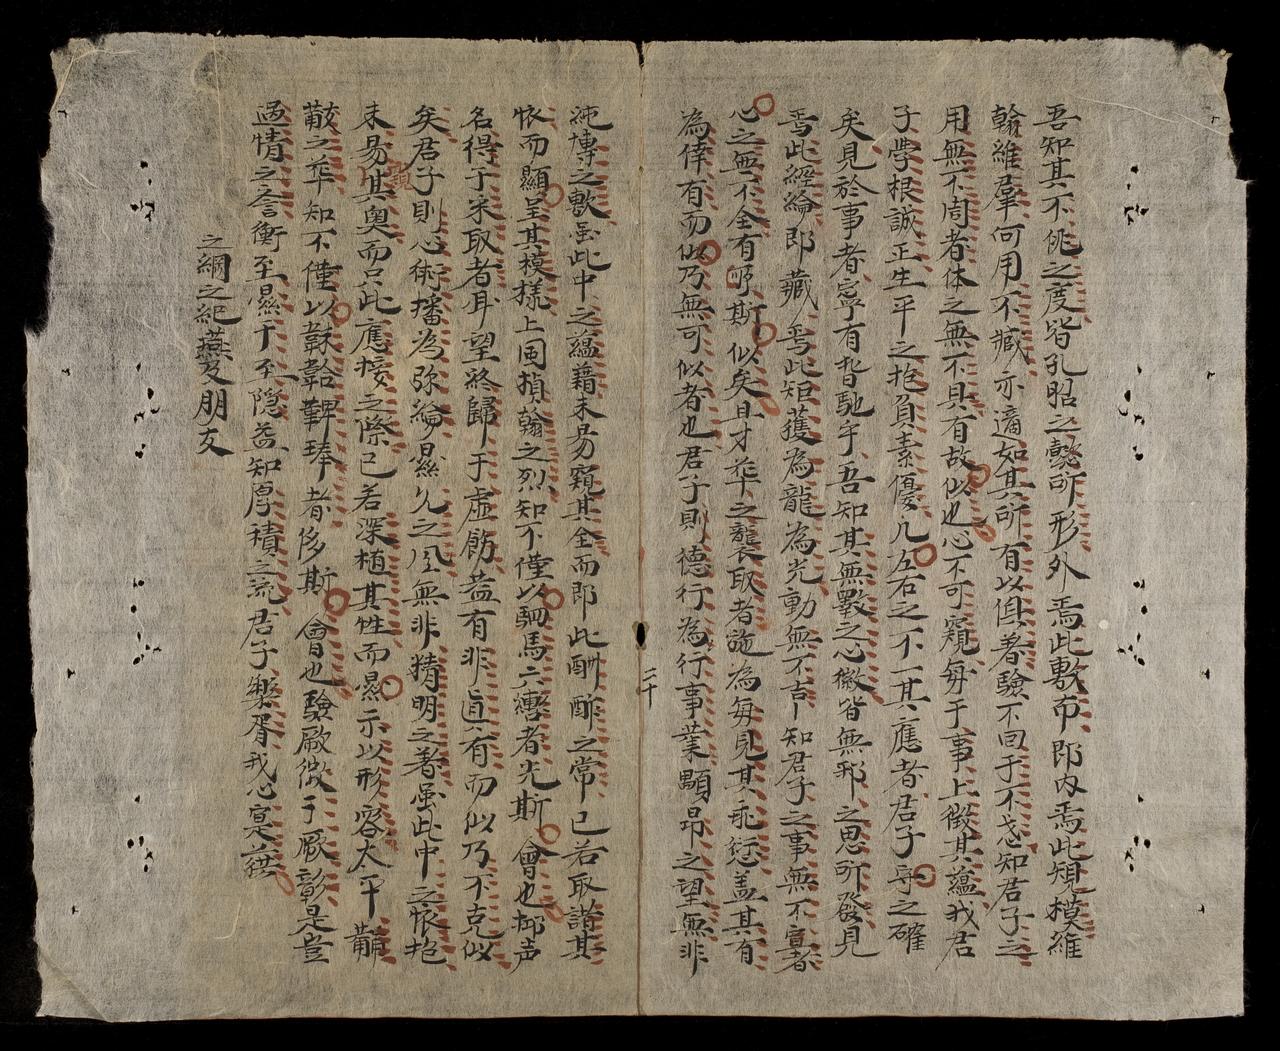 吾知其不佻之度皆孔昭之懿所形外焉此敷布即内焉此規模維
翰維羣何用不臧亦適如其所有以俱著驗不回于不忒知君子之
用無不周者体之無不具有故似也心不可窺每于事上徵其蘊我君
子學根誠正生平之抱負素優凡左右之不一其應者君子乎之確
矣見於事者寧有皆馳乎吾知其無斁之心微皆無邪之思所發見
焉此經綸即藏焉此矩獲為龍為光動無不吉知君子之事無不宜者
心之無不全有所斯似矣具才華之襲取者施為每見其乖愆盖其有
為倖有而似乃無可似者也君子則德行為行事業顒昂之望無非
純慱之敷虽此中之蘊藉未易窺其全而即此酬酢之常已若取諸其
怀而顯呈其模樣上囯損翰之烈知不僅以駟馬六轡者光斯會也揶声
名得于采取者耳望終歸于虛飾盖有非真有而似乃不克似
矣君子則心術播為弥綸景久之风無非精明之著虽此中之怀抱
未易其奥而只此應接之際已若深植其性而㬎示以形容太平黼
黻之華知不僅以韎韐鞞琫者侈斯會也驗厥微于厥彰是豈
過情之詹衡至㬎于至隐益知厚積之流君子樂胥我心寔
之綱之紀燕及朋友
三十